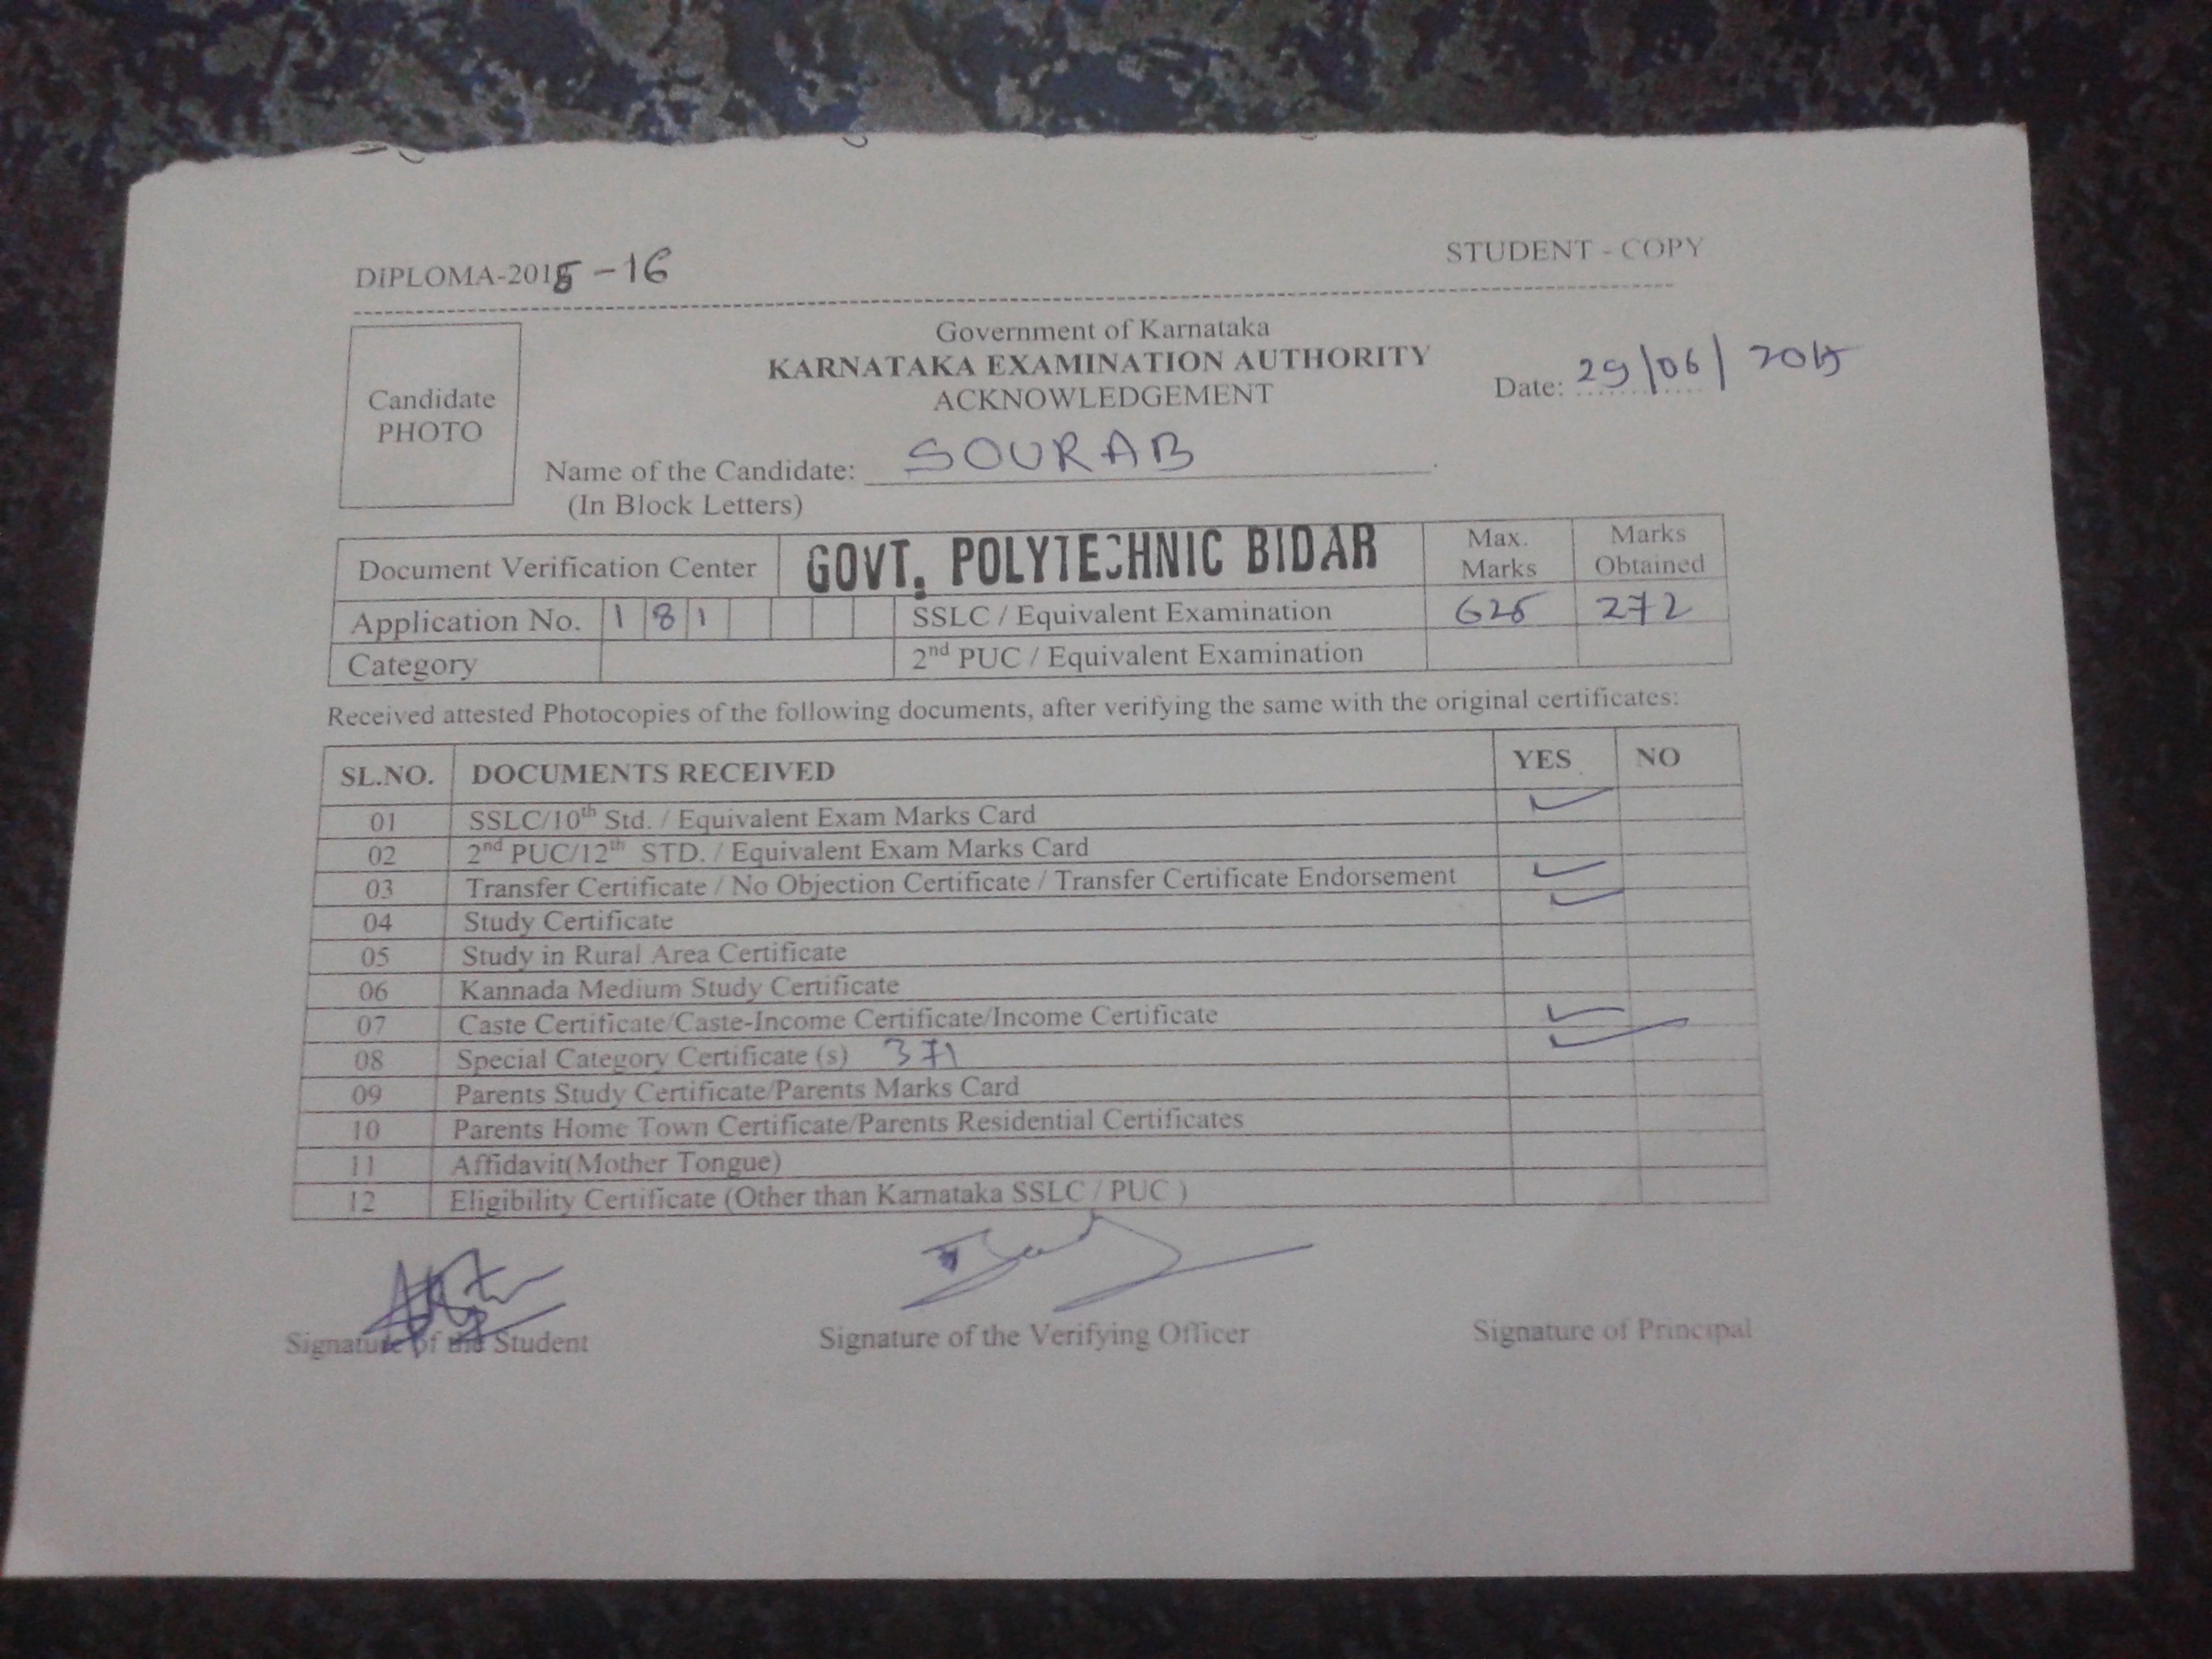 DIPLOMA-2015-16
STUDENT - COPY
Government of Karnataka
KARNATAKA EXAMINATION AUTHORITY
ACKNOWLEDGEMENT
Date: 29/06/2015
Candidate
PHOTO
Name of the Candidate: SOURAB
(In Block Letters)
Document Verification Center GOVT. POLYTECHNIC BIDAR Max. Marks Marks Obtained
Application No. 1 8 1 SSLC / Equivalent Examination 625 272
Category 2nd PUC / Equivalent Examination
Received attested Photocopies of the following documents, after verifying the same with the original certificates:
SL.NO. DOCUMENTS RECEIVED YES NO
01 SSLC/10th Std. / Equivalent Exam Marks Card ✓
02 2nd PUC/12th STD. / Equivalent Exam Marks Card
03 Transfer Certificate / No Objection Certificate / Transfer Certificate Endorsement ✓
04 Study Certificate ✓
05 Study in Rural Area Certificate
06 Kannada Medium Study Certificate
07 Caste Certificate/Caste-Income Certificate/Income Certificate ✓
08 Special Category Certificate (s) 371 ✓
09 Parents Study Certificate/Parents Marks Card
10 Parents Home Town Certificate/Parents Residential Certificates
11 Affidavit(Mother Tongue)
12 Eligibility Certificate (Other than Karnataka SSLC / PUC )
Signature of the Student Signature of the Verifying Officer Signature of Principal